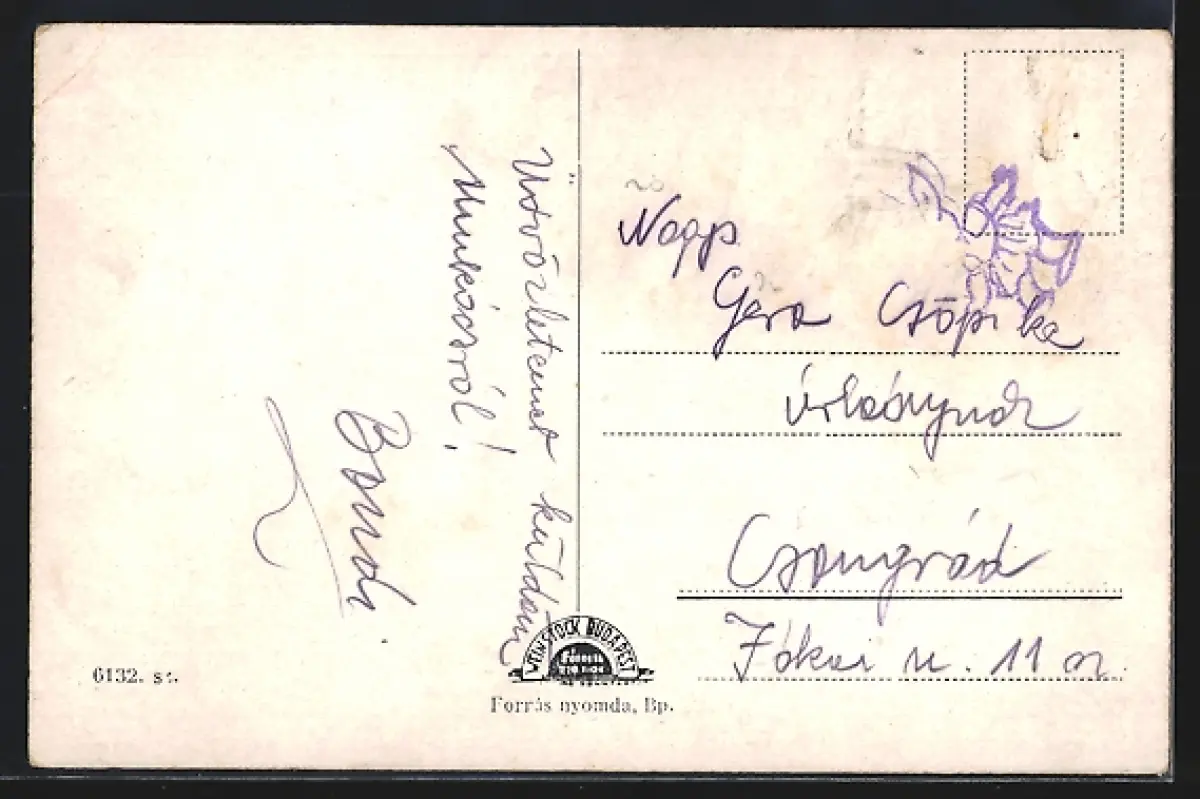 Üdvözletemet küldöm
Munkácsról!
Bandi
Nagy
Gera Csöpike
úrleánynak
Csongrád
Jókai u. 11 sz.
6132. sz.
WEINSTOCK BUDAPEST
Forrás nyomda, Bp.